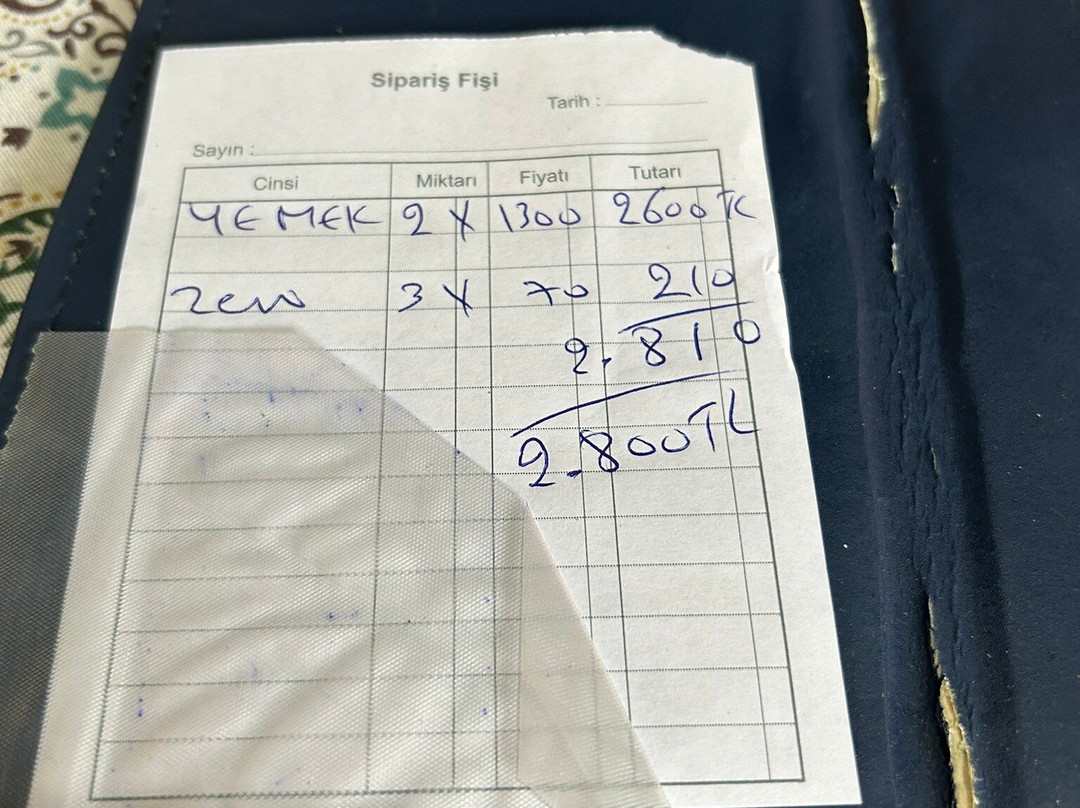 Sipariş Fişi
Tarih :
Sayın :
Cinsi Miktarı Fiyatı Tutarı
YEMEK 2 X 1300 2600 TL
3 X 70 210
2.810
2.800 TL